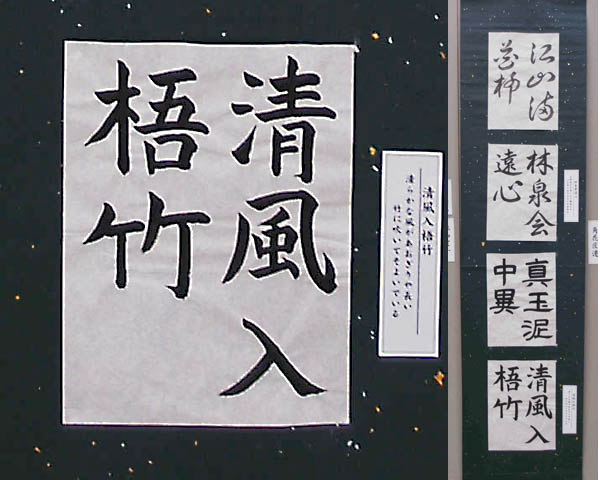 清風入
梧竹
清風入梧竹
清らかな風があおぎりや長い
竹に吹いてそよいでいる
江山満
花柳
林泉会
遠心
真玉泥
中異
清風入
梧竹